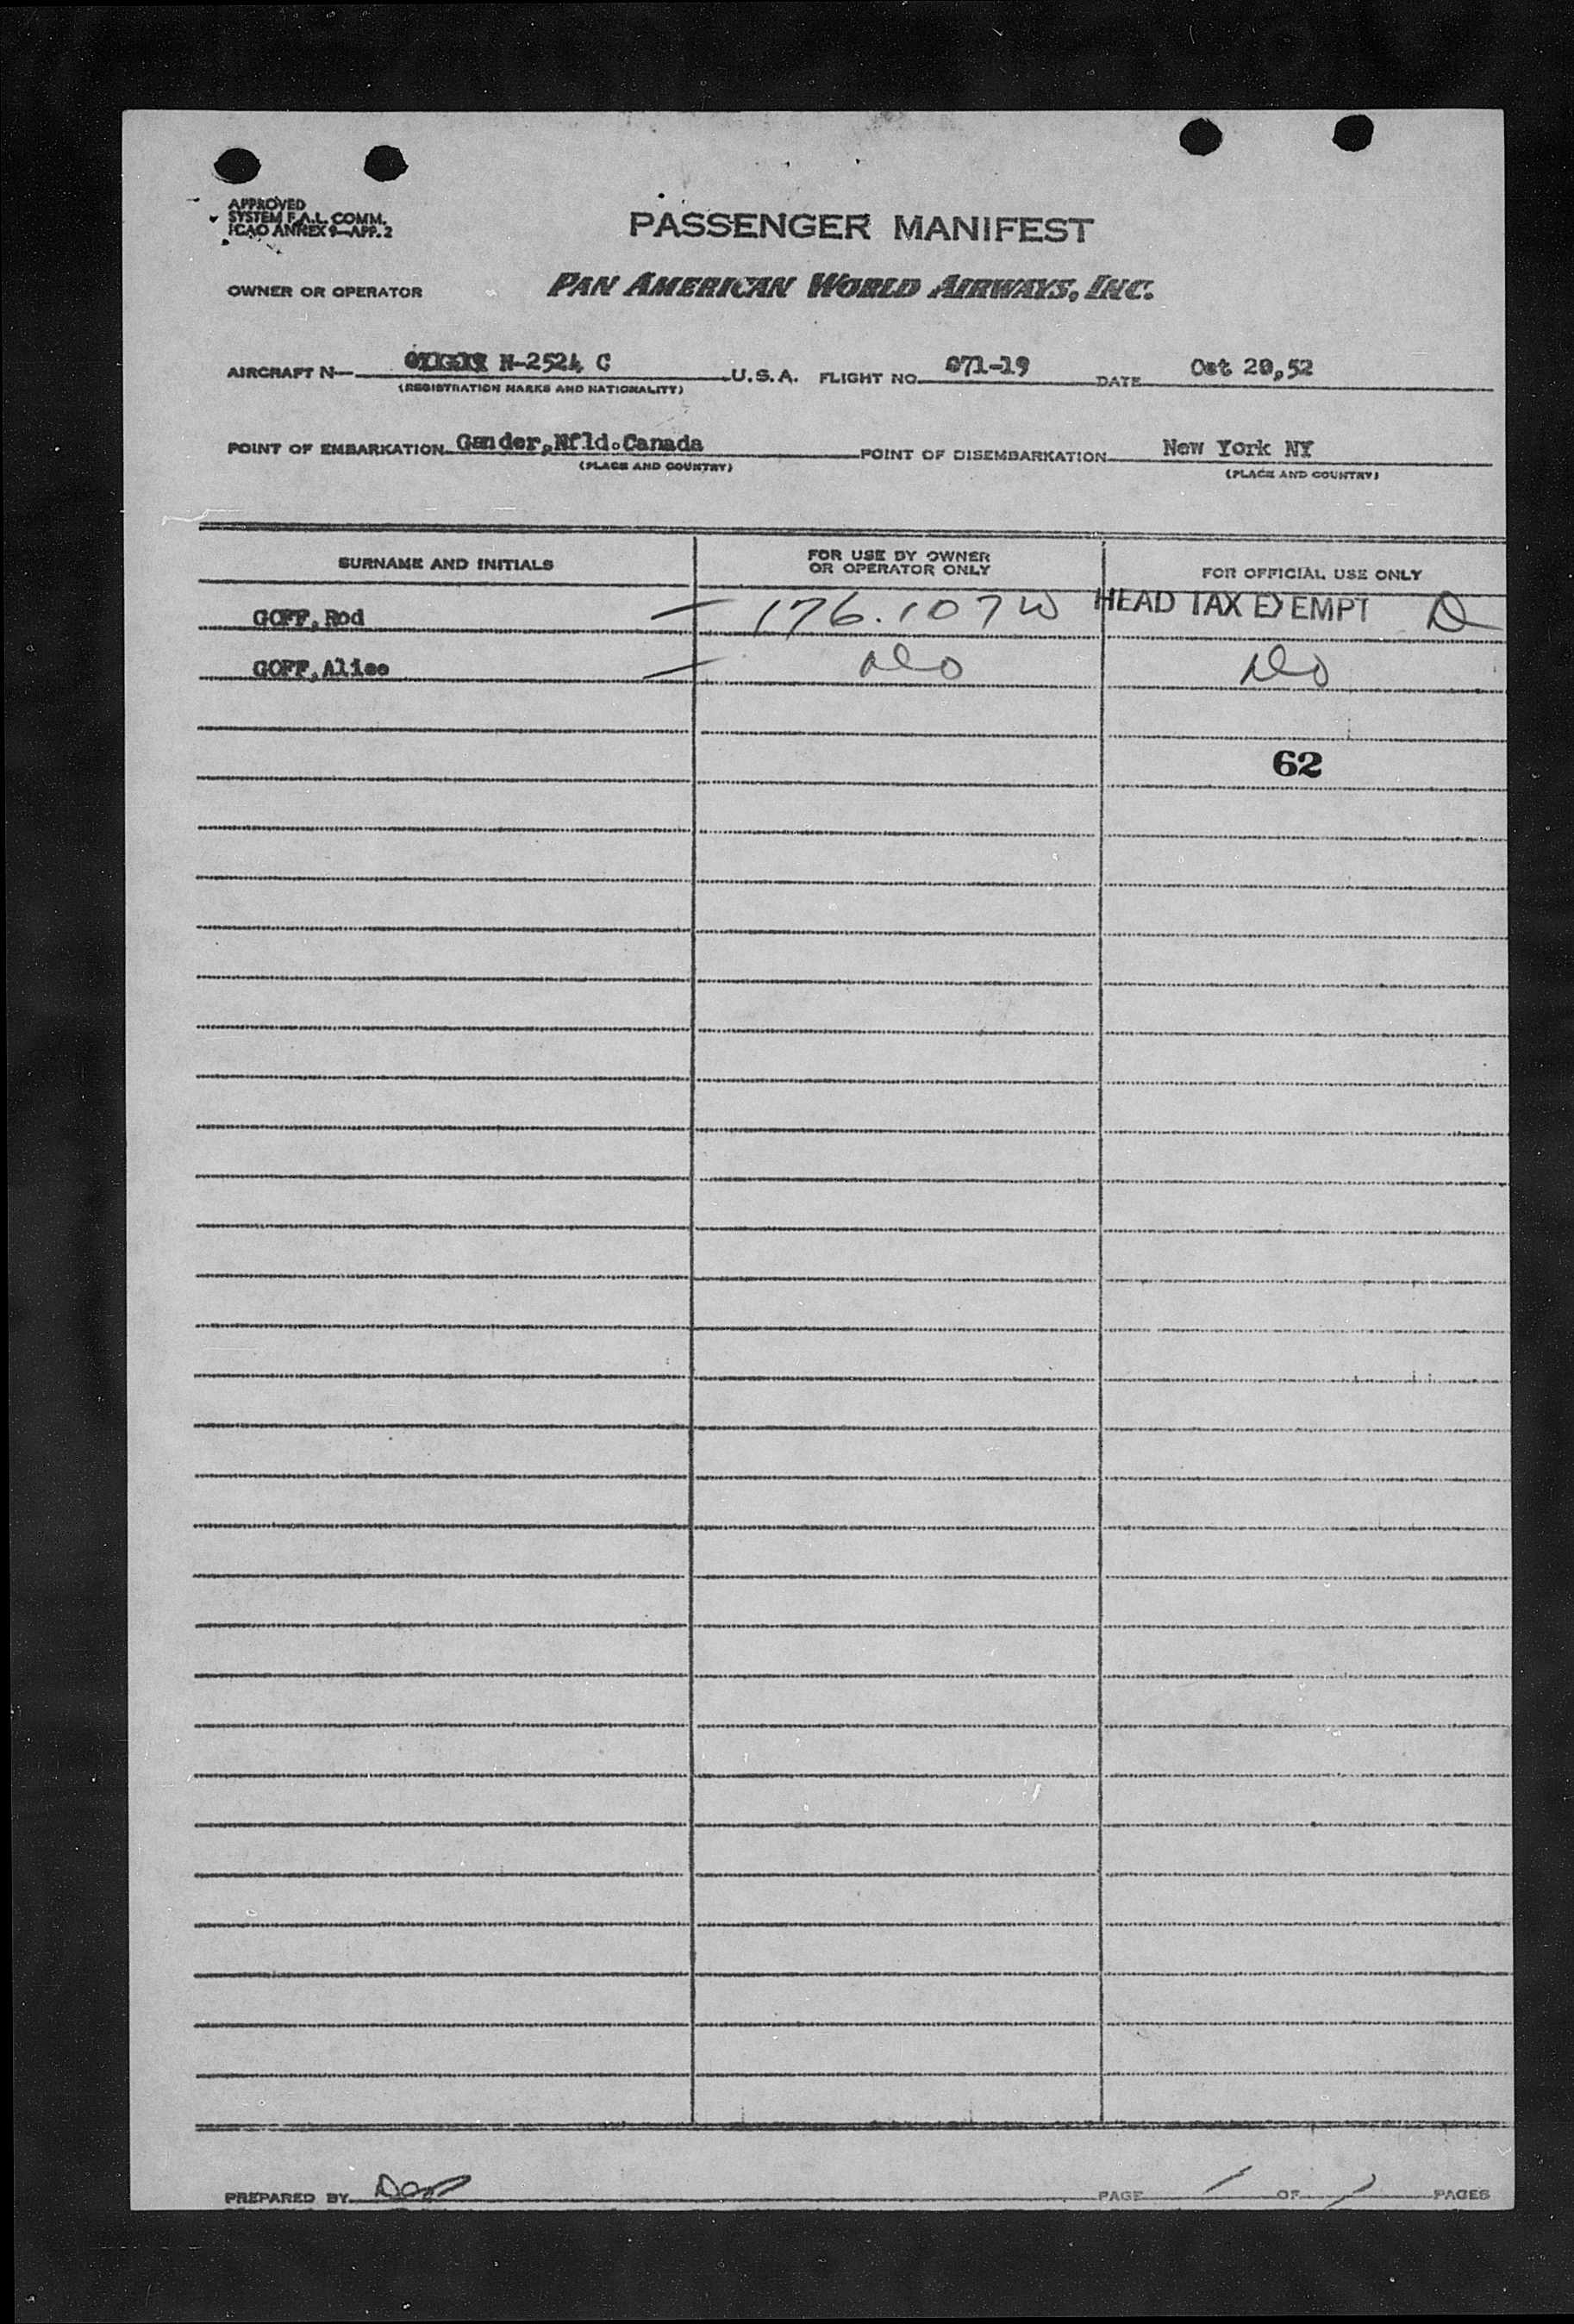 APPROVED
SYSTEM F.A.L. COMM.
ICAO ANNEX 9—APP. 2
PASSENGER MANIFEST
OWNER OR OPERATOR PAN AMERICAN WORLD AIRWAYS, INC.
AIRCRAFT N— N-2524 C U.S.A. FLIGHT NO. 071-19 DATE Oct 20,52
(REGISTRATION MARKS AND NATIONALITY)
POINT OF EMBARKATION Gander,Nfld.Canada POINT OF DISEMBARKATION New York NY
(PLACE AND COUNTRY) (PLACE AND COUNTRY)
SURNAME AND INITIALS FOR USE BY OWNER OR OPERATOR ONLY FOR OFFICIAL USE ONLY
GOFF,Rod — 176.107 W HEAD TAX EXEMPT
GOFF,Alice — Do Do
62
PREPARED BY PAGE 1 OF 1 PAGES